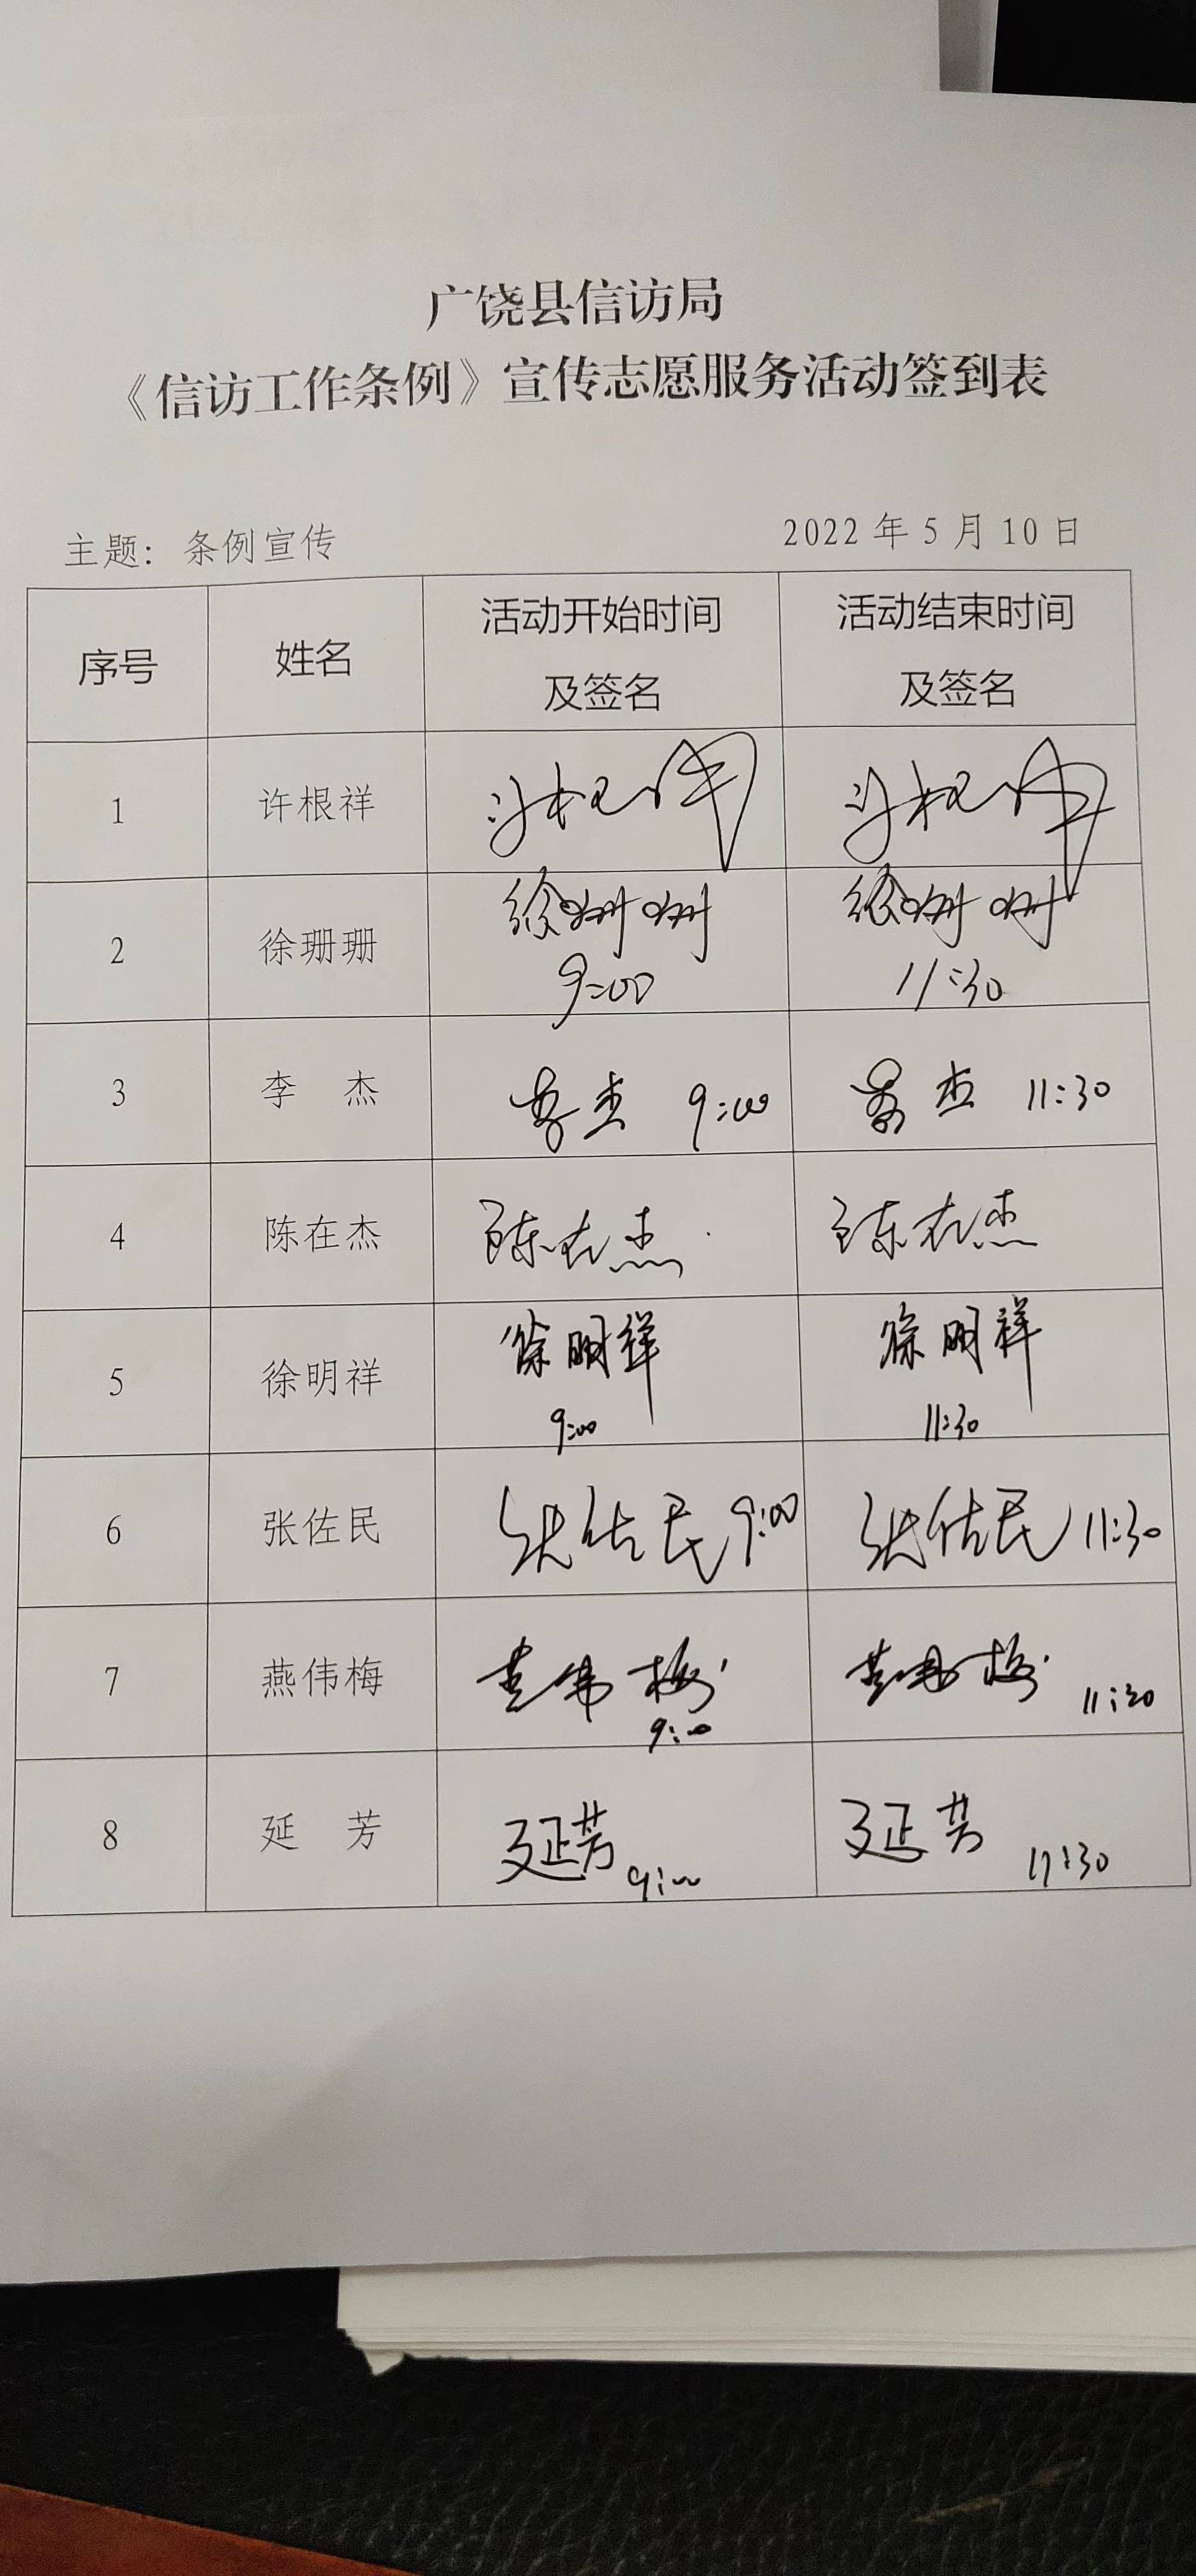 广饶县信访局
《信访工作条例》宣传志愿服务活动签到表
主题：条例宣传 2022年5月10日
序号 姓名 活动开始时间及签名 活动结束时间及签名
1 许根祥 许根祥 许根祥
2 徐珊珊 徐珊珊 9:00 徐珊珊 11:30
3 李 杰 李杰 9:00 李杰 11:30
4 陈在杰 陈在杰 陈在杰
5 徐明祥 徐明祥 9:00 徐明祥 11:30
6 张佐民 张佐民 9:00 张佐民 11:30
7 燕伟梅 燕伟梅 9:00 燕伟梅 11:30
8 延 芳 延芳 9:00 延芳 11:30